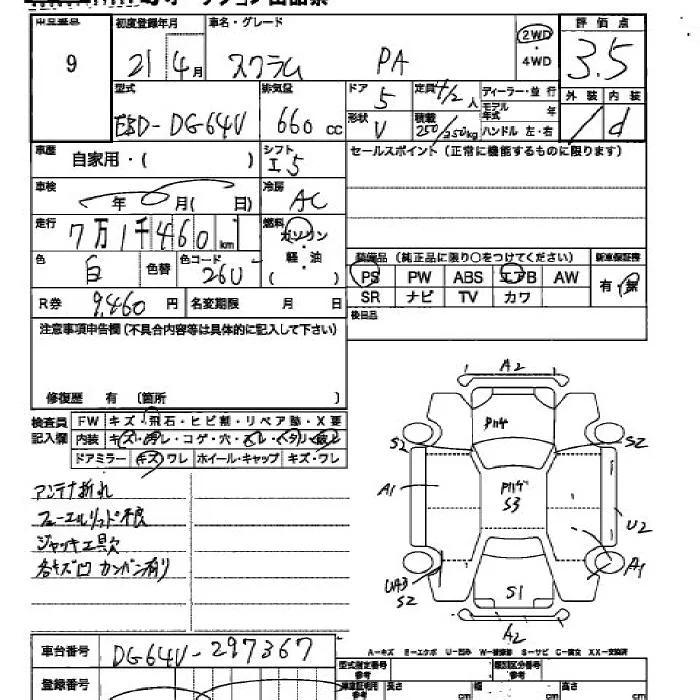 初度登録年月
車名・グレード
評価点
9
21 4月
スクラム PA
2WD
・
4WD
3.5
型式
排気量
ドア
5
定員 4/2 人
ディーラー・並 行
モデル年式
ハンドル 左・右
外 装
内 装
d
EBD-DG64V
660 cc
形状
V
積載
250/350kg
車歴
自家用・( )
シフト
I5
セールスポイント(正常に機能するものに限ります)
車検
年 月( 日)
冷房
AC
走行
7万1千460 km
燃料
ガソリン
・
軽・油
( )
色
白
色替
色コード
26U
装備品(純正品に限り○をつけてください)
新車保証書
PS PW ABS エアB AW
有・無
SR ナビ TV カワ
R券
9,460 円
名変期限 月 日
後日品
注意事項申告欄(不具合内容等は具体的に記入して下さい)
修復歴 有 〔箇所 〕
検査員
記入欄
FW キズ・飛石・ヒビ割・リペア跡・X要
内装 キズ・汚レ・コゲ・穴・
ドアミラー キズ・ワレ ホイール・キャップ キズ・ワレ
アンテナ折れ
フューエルリッド不良
ジャッキ工具欠
各キズ凹 カンバン有り
A2
S2
S2
A1
S3
U2
A1
S2
S1
A2
A-キズ E-エクボ U-凹み W-補修跡 S-サビ C-腐食 XX-交換済
車台番号
DG64V-297367
登録番号
型式指定番号
参考
類別区分番号
参考
高さ cm
幅 cm
長さ cm